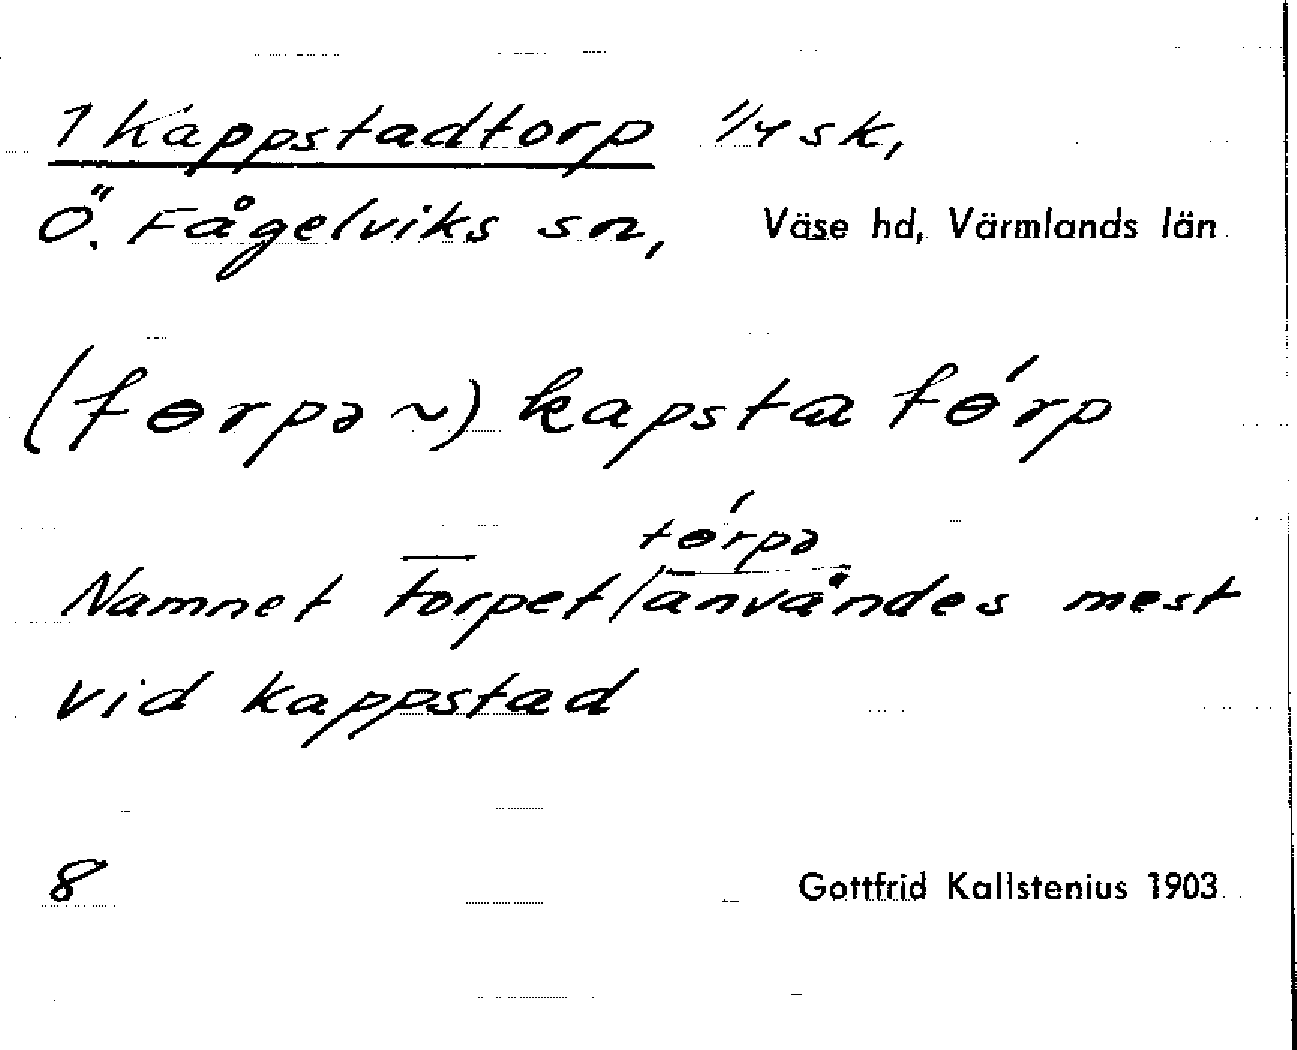 1 Kappstadtorp 1/4 sk,
Ö. Fågelviks sn, Väse hd, Värmlands län
(tɵrpə ~) kapsta tɵ́rp
tɵ́rpə
Namnet Torpet / användes mest
vid Kappstad
8 Gottfrid Kallstenius 1903